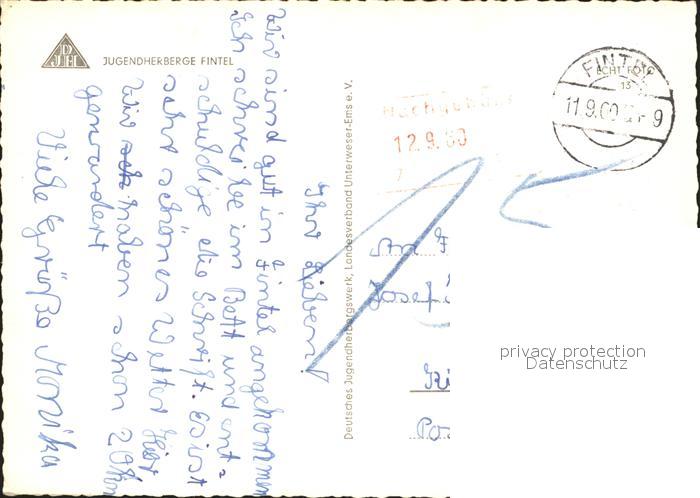 JUGENDHERBERGE FINTEL
Ihr Lieben!
Wir sind gut in Fintel angekommen
Ich schreibe im Bett und ent=
schuldige die Schrift. Es ist
sehr schönes Wetter hier
Wir haben schon 20km
gewandert
Viele Grüße Monika
Deutsches Jugendherbergswerk, Landesverband Unterweser-Ems e.V.
ECHT FOTO
FINTEL
11.9.60
9
Nachgebühr
12.9.60
7
An F
Josef
Ki
Pos
privacy protection
Datenschutz